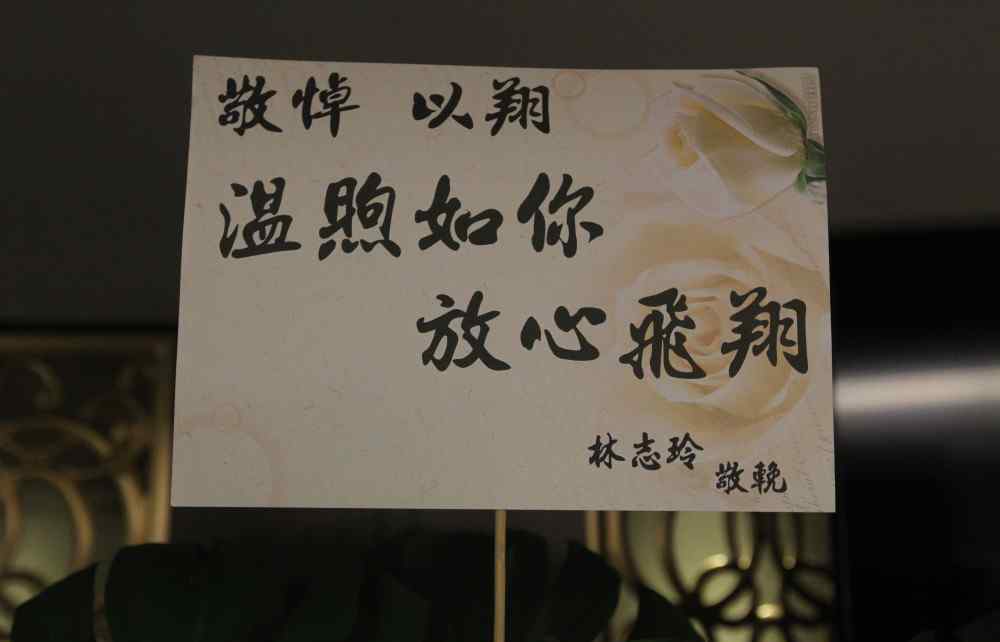 敬悼 以翔
溫煦如你
放心飛翔
林志玲
敬輓